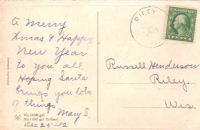 A Merry
Xmas & Happy
New Year
to you all
Hoping Santa
brings you lots
of things. May S.
Dec 23-12
RILEY
Russell Henderson
Riley.
Wis.